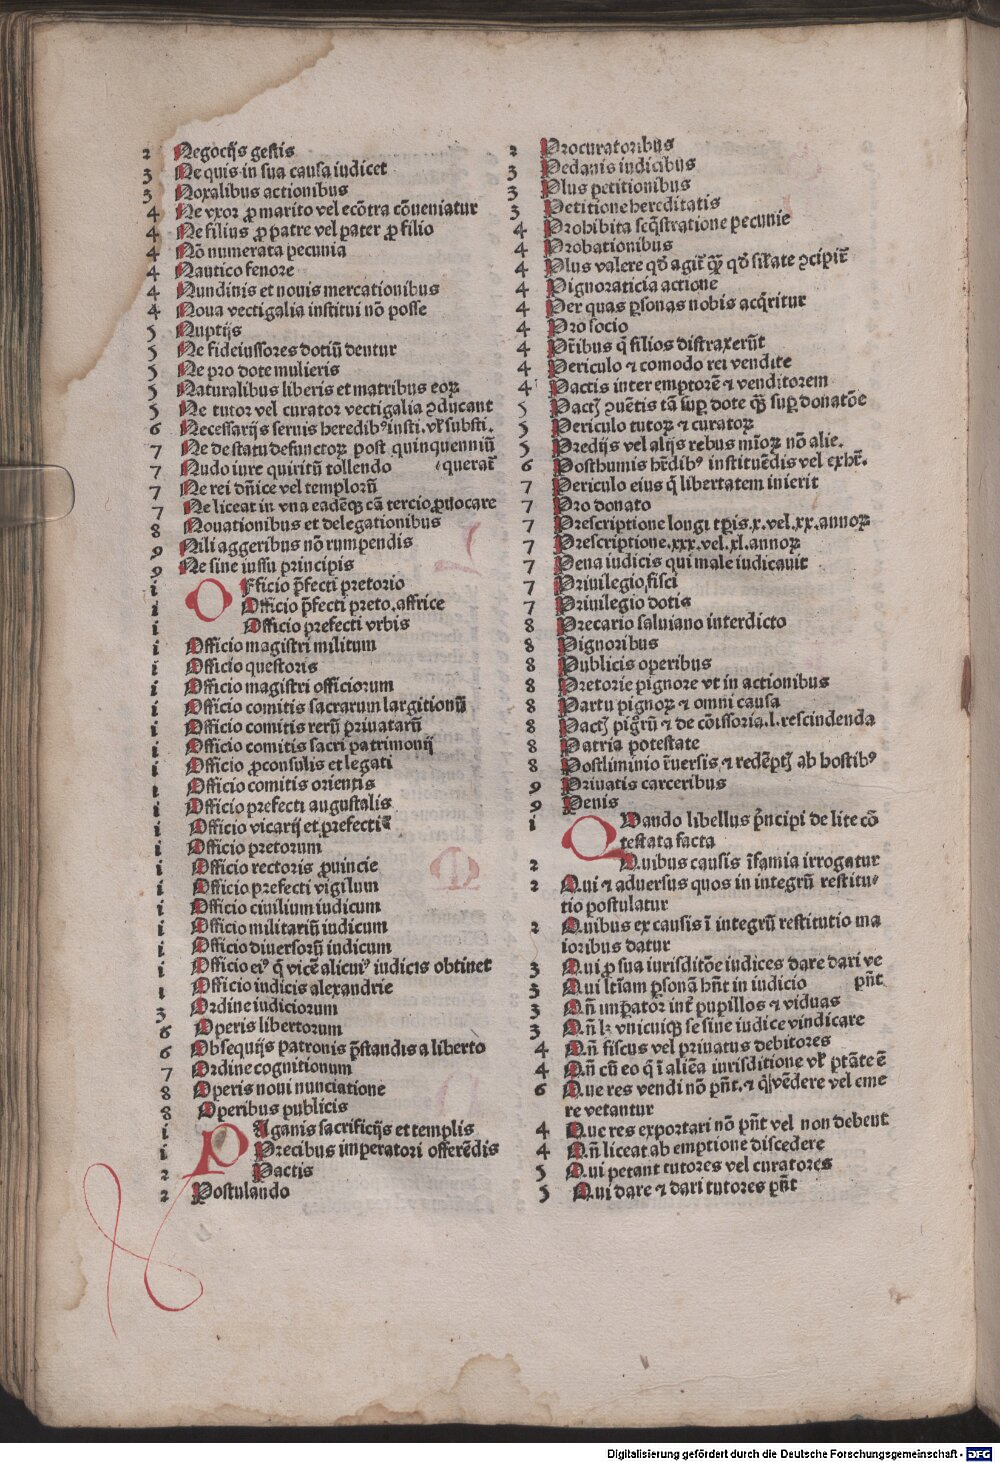 2 Negocijs gestis
3 Ne quis in sua causa iudicet
3 Noxalibus actionibus
4 Ne vxor ꝓ marito vel ecōtra cōueniatur
4 Ne filius ꝓ patre vel pater ꝓ filio
4 Nō numerata pecunia
4 Nautico fenore
4 Nundinis et nouis mercationibus
4 Noua vectigalia institui nō posse
5 Nuptijs
5 Ne fideiussores dotiū dentur
5 Ne pro dote mulieris
5 Naturalibus liberis et matribus eoꝝ
5 Ne tutor vel curator vectigalia ꝯducant
6 Necessarijs seruis heredibꝰ insti. vĺ substi.
7 Ne de statu defunctoꝝ post quinquenniū
7 Nudo iure quiritū tollendo querat̄
7 Ne rei dn̄ice vel templorū
7 Ne liceat in vna eadēqꝫ cā tercio ꝓuocare
8 Nouationibus et delegationibus
9 Nili aggeribus nō rumpendis
9 Ne sine iussu principis
i Officio p̄fecti pretorio
i Officio p̄fecti preto. affrice
i Officio prefecti vrbis
i Officio magistri militum
i Officio questoris
i Officio magistri officiorum
i Officio comitis sacrarum largitionū
i Officio comitis rerū priuatarū
i Officio comitis sacri patrimonij
i Officio ꝓconsulis et legati
i Officio comitis orientis
i Officio prefecti augustalis
i Officio vicarij et prefecti
i Officio pretorum
i Officio rectoris ꝓuincie
i Officio prefecti vigilum
i Officio ciuilium iudicum
i Officio militariū iudicum
i Officio diuersorū iudicum
i Officio eiꝰ q̄ vicē alicuiꝰ iudicis obtinet
i Officio iudicis alexandrie
3 Ordine iudiciorum
6 Operis libertorum
6 Obsequijs patronis p̄standis a liberto
7 Ordine cognitionum
8 Operis noui nunciatione
8 Operibus publicis
i Paganis sacrificijs et templis
i Precibus imperatori offerēdis
2 Pactis
2 Postulando
2 Procuratoribus
3 Pedanis iudicibus
3 Plus petitionibus
3 Petitione hereditatis
4 Prohibita seq̄stratione pecunie
4 Probationibus
4 Plus valere qđ agit̄ qꝫ qđ sił̄ate ꝯcipit̄
4 Pignoraticia actione
4 Per quas ꝑsonas nobis acq̄ritur
4 Pro socio
4 Pr̄ibus q̄ filios distraxerūt
4 Periculo ⁊ comodo rei vendite
4 Pactis inter emptorē ⁊ venditorem
5 Pact ꝯuētis tā suꝑ dote qꝫ suꝑ donatōe
5 Periculo tutoꝝ ⁊ curatoꝝ
5 Predijs vel alijs rebus mīoꝝ nō alie.
6 Posthumis hr̄dibꝰ instituēdis vel exhr̄.
7 Periculo eius q̄ libertatem inierit
7 Pro donato
7 Prescriptione longi tꝑis.x.vel.xx.annoꝝ
7 Prescriptione.xxx.vel.xl.annoꝝ
7 Pena iudicis qui male iudicauit
7 Priuilegio fisci
7 Priuilegio dotis
8 Precario saluiano interdicto
8 Pignoribus
8 Publicis operibus
8 Pretorie pignore vt in actionibus
8 Partu pignoꝝ ⁊ omni causa
8 Pact pigr̄ū ⁊ de cōissoria.l.rescindenda
8 Patria potestate
8 Postliminio r̄uersis ⁊ redēpt ab hostibꝰ
9 Priuatis carceribus
9 Penis
i Quando libellus p̄ncipi de lite cō
testata facta
2 Quibus causis īfamia irrogatur
2 Qui ⁊ aduersus quos in integrū restitu-
tio postulatur
2 Quibus ex causis ī integrū restitutio ma
ioribus datur
3 Qui ꝓ sua iurisditōe iudices dare dari ve
3 Qui ltīam ꝑsonā hn̄t in iudicio pn̄t
3 Qn̄ imꝑator int̄ pupillos ⁊ viduas
3 Qn̄ lꝫ vnicuiqꝫ se sine iudice vindicare
4 Qn̄ fiscus vel priuatus debitores
4 Qn̄ cū eo q̄ ī aliēa iurisditione vĺ ptāte ē
6 Que res vendi nō pn̄t. ⁊ q̄ vēdere vel eme
re vetantur
4 Que res exportari nō pn̄t vel non debent
4 Qn̄ liceat ab emptione discedere
5 Qui petant tutores vel curatores
5 Qui dare ⁊ dari tutores pn̄t
Digitalisierung gefördert durch die Deutsche Forschungsgemeinschaft - DFG